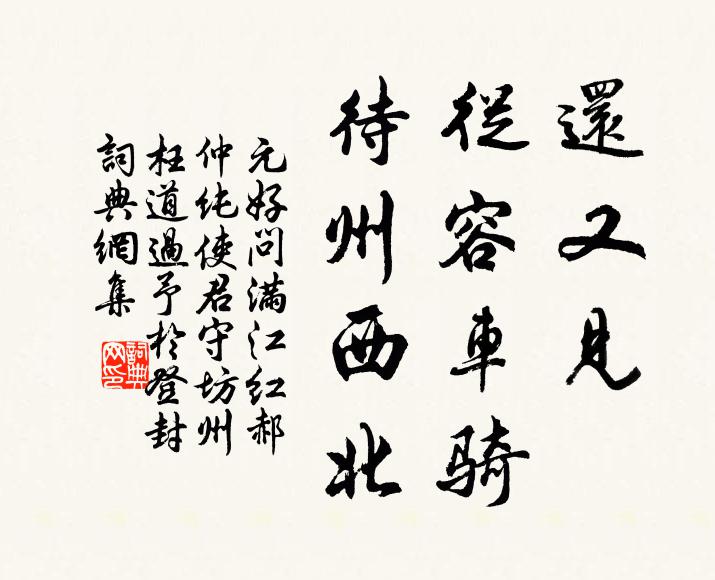 還又見
從容車騎
待州西北
元好问滿江红郝
仲纯使君守坊州
枉道過予於登封
詞典網集
詞典
网印